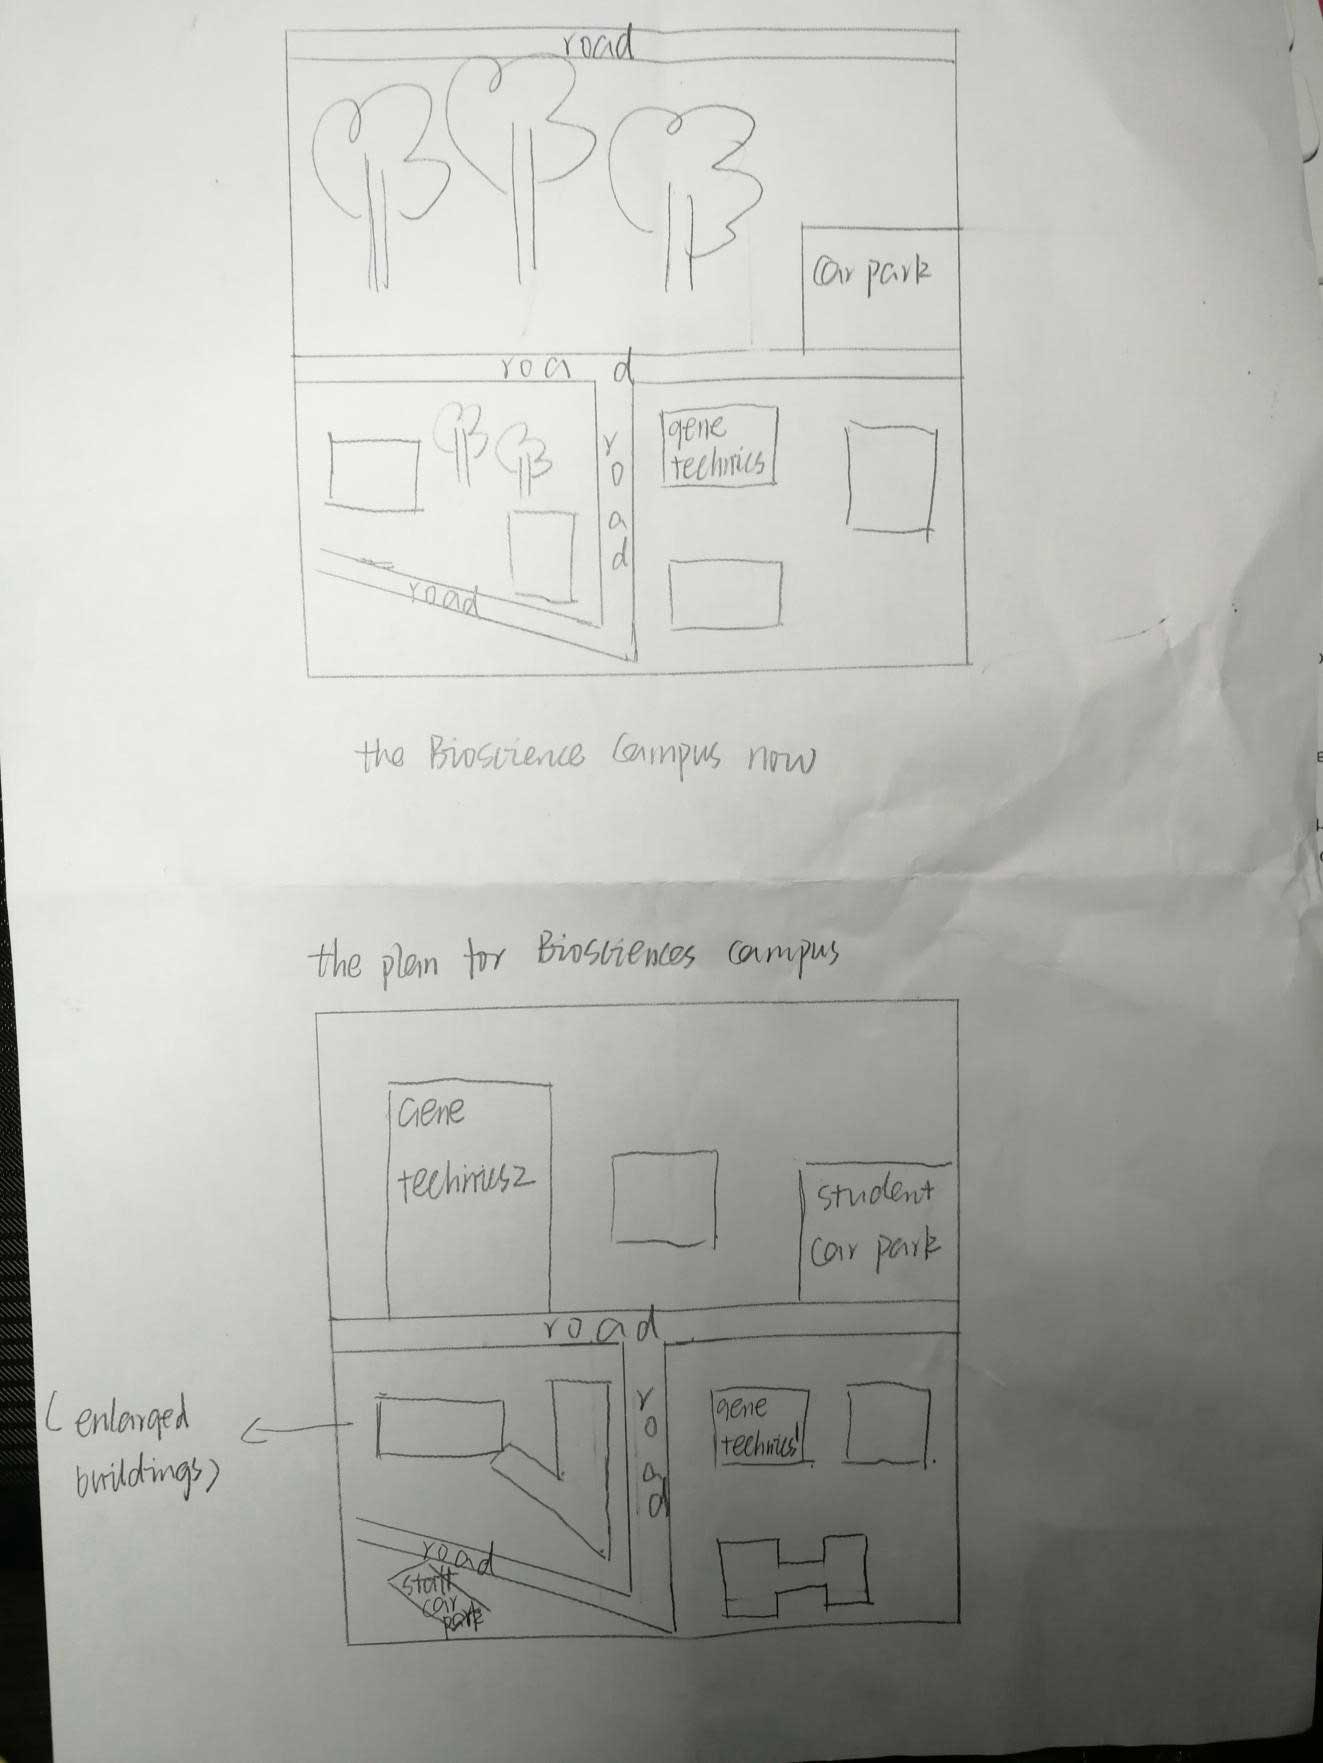 road
car park
road
road
gene
technics
road
the Bioscience Campus now
the plan for Biosciences campus
Gene
technics2
student
car park
road
road
gene
technics1
(enlarged
buildings)
road
staff
car
park